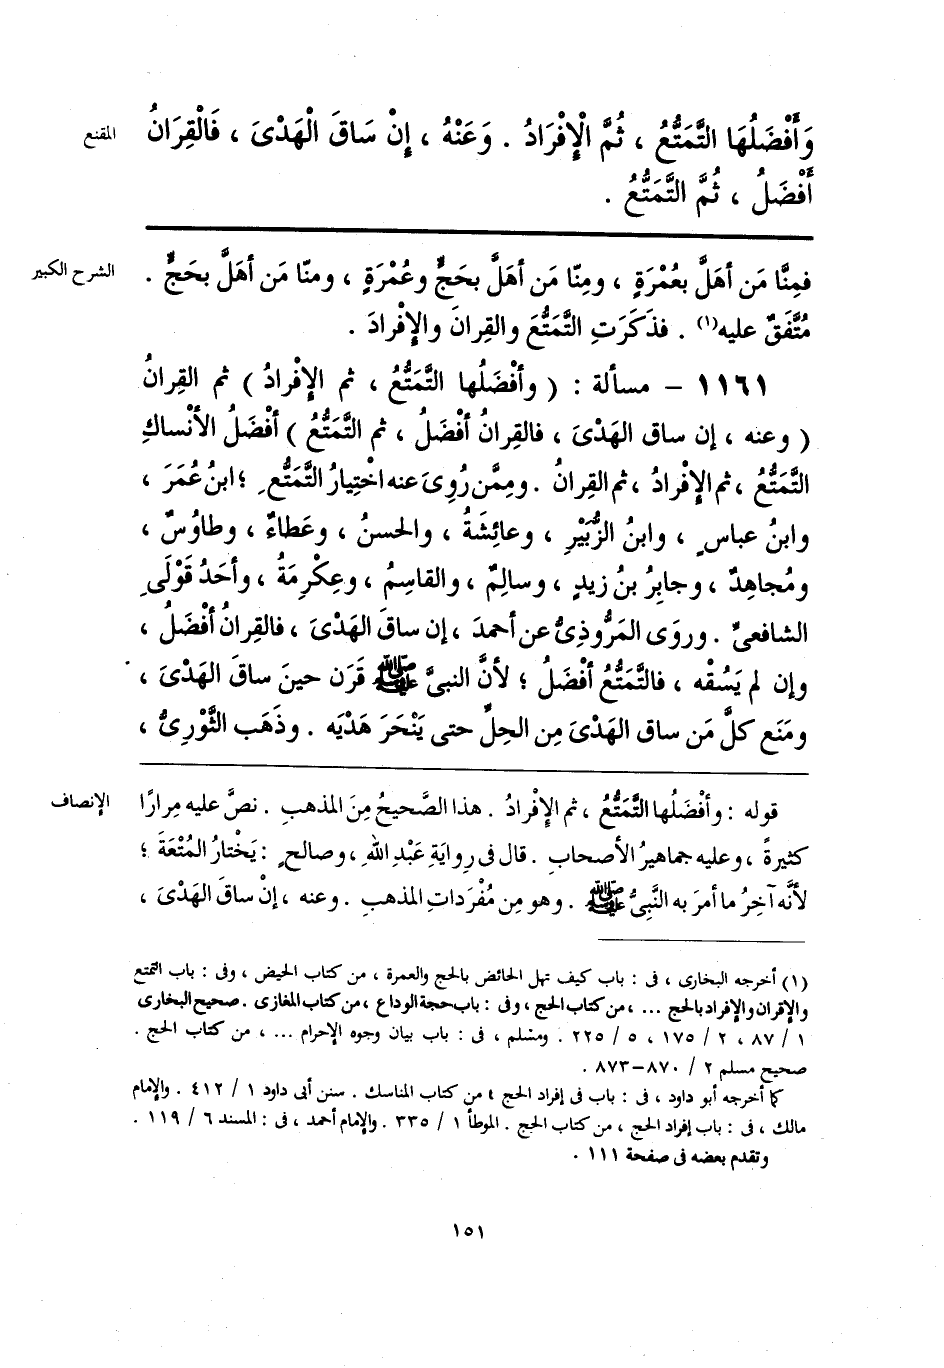 المقنع
وَأَفْضَلُهَا التَّمَتُّعُ ، ثُمَّ الْإِفْرَادُ . وَعَنْهُ ، إِنْ سَاقَ الْهَدْىَ ، فَالْقِرَانُ
أَفْضَلُ ، ثُمَّ التَّمَتُّعُ .
الشرح الكبير
فمِنَّا مَن أهَلَّ بعُمْرَةٍ ، ومِنّا مَن أهَلَّ بحَجٍّ وعُمْرَةٍ ، ومنّا مَن أهَلَّ بحَجٍّ .
مُتَّفَقٌ عليه(١) . فذَكَرَتِ التَّمَتُّعَ والقِرانَ والإفْرادَ .
١١٦١ – مسألة : ( وأفْضَلُها التَّمَتُّعُ ، ثم الإفْرادُ ) ثم القِرانُ
( وعنه ، إن ساق الهَدْىَ ، فالقِرانُ أفْضَلُ ، ثم التَّمَتُّعُ ) أفْضَلُ الأنْساكِ
التَّمَتُّعُ ، ثم الإفْرادُ ، ثم القِرانُ . وممَّن رُوِىَ عنه اخْتِيارُ التَّمَتُّعِ ؛ ابنُ عُمَرَ ،
وابنُ عباسٍ ، وابنُ الزُّبَيْرِ ، وعائِشَةُ ، والحسنُ ، وعَطاءٌ ، وطاوُسٌ ،
ومُجاهِدٌ ، وجابِرُ بنُ زيدٍ ، وسالِمٌ ، والقاسِمُ ، وعِكْرِمَةُ ، وأحَدُ قَوْلَىِ
الشافعىِّ . وروَى المَرُّوذِىُّ عن أحمدَ ، إن ساقَ الهَدْىَ ، فالقِرانُ أفْضَلُ ،
وإن لم يَسُقْه ، فالتَّمَتُّعُ أفْضَلُ ؛ لأنَّ النبىَّ ﷺ قَرَن حينَ ساقَ الهَدْىَ ،
ومَنَع كلَّ مَن ساق الهَدْىَ مِن الحِلِّ حتى يَنْحَرَ هَدْيَه . وذَهَب الثَّوْرِىُّ ،
الإنصاف
قوله : وأفْضَلُها التَّمَتُّعُ ، ثم الإفْرادُ . هذا الصَّحيحُ مِنَ المذهبِ . نصَّ عليه مِرارًا
كثيرةً ، وعليه جماهيرُ الأصحابِ . قال فى رِوايَةِ عَبْدِ اللهِ ، وصالحٍ : يَخْتارُ المُتْعَةَ ؛
لأنَّه آخِرُ ما أمرَ به النَّبِىُّ ﷺ . وهو مِن مُفْرَداتِ المذهبِ . وعنه ، إنْ ساقَ الهَدْىَ ،
(١) أخرجه البخارى ، فى : باب كيف تهل الحائض بالحج والعمرة ، من كتاب الحيض ، وفى : باب التمتع
والإقران والإفراد بالحج ... ، من كتاب الحج ، وفى : باب حجة الوداع ، من كتاب المغازى . صحيح البخارى
١ / ٨٧ ، ٢ / ١٧٥ ، ٥ / ٢٢٥ . ومسلم ، فى : باب بيان وجوه الإحرام ... ، من كتاب الحج .
صحيح مسلم ٢ / ٨٧٠–٨٧٣ .
كما أخرجه أبو داود ، فى : باب فى إفراد الحج ، من كتاب المناسك . سنن أبى داود ١ / ٤١٢ . والإمام
مالك ، فى : باب إفراد الحج ، من كتاب الحج . الموطأ ١ / ٣٣٥ . والإمام أحمد ، فى : المسند ٦ / ١١٩ .
وتقدم بعضه فى صفحة ١١١ .
١٥١